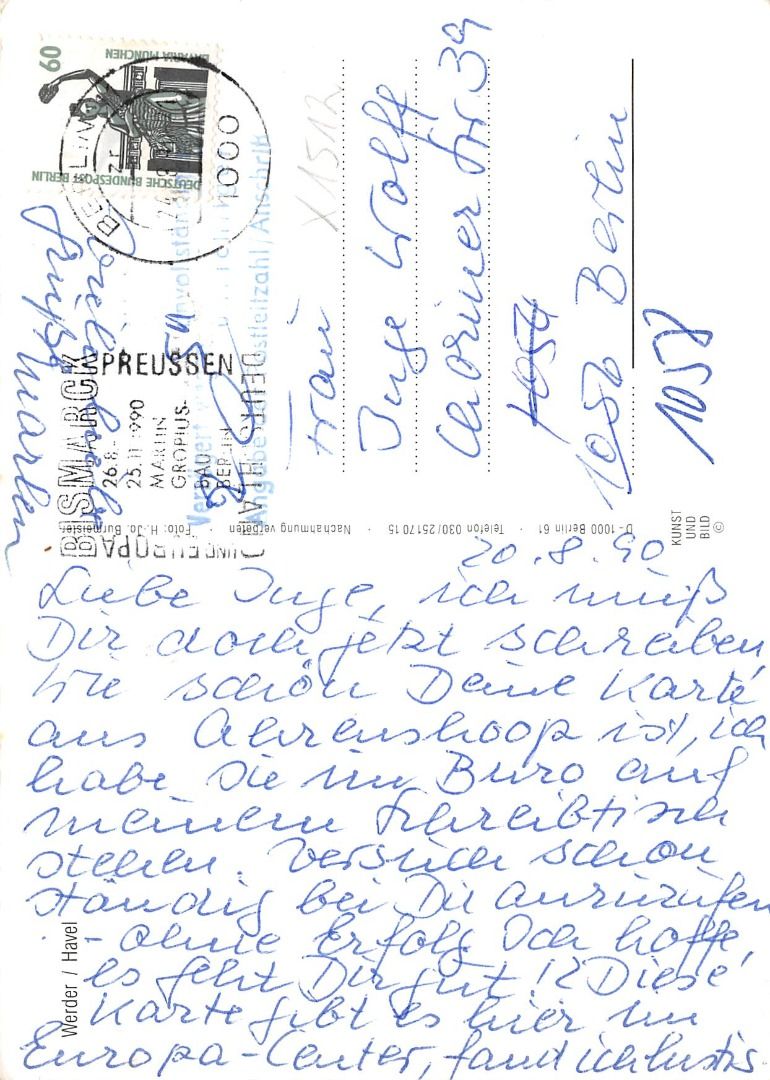 60
BAVARIA MÜNCHEN
DEUTSCHE BUNDESPOST BERLIN
BERLIN
1000
BISMARCK
PREUSSEN
DEUTSCHLAND
UND EUROPA
26.8.-
25.11.1990
MARTIN-
GROPIUS-
BAU
BERLIN
Angabe der Postleitzahl/Anschrift
X1512
Frau
Inge Wolff
Choriner Str 39
1054
1050 Berlin
1058
KUNST
UND
BILD
©
D-1000 Berlin 61 · Telefon 030/2517015 · Nachahmung verboten · Foto: H. Jo. Burmeister
Werder / Havel
20.8.90
Liebe Inge, ich muß
Dir doch jetzt schreiben,
wie schön Deine Karte
aus Ahrenshoop ist, ich
habe sie im Büro auf
meinem Schreibtisch
stehen. Versuch schon
ständig bei Dir anzurufen
- ohne Erfolg. Ich hoffe,
es geht Dir gut!? Diese
Karte gibt es hier im
Europa-Center, fand ich lustig.
Viele liebe
Grüße
Marlen